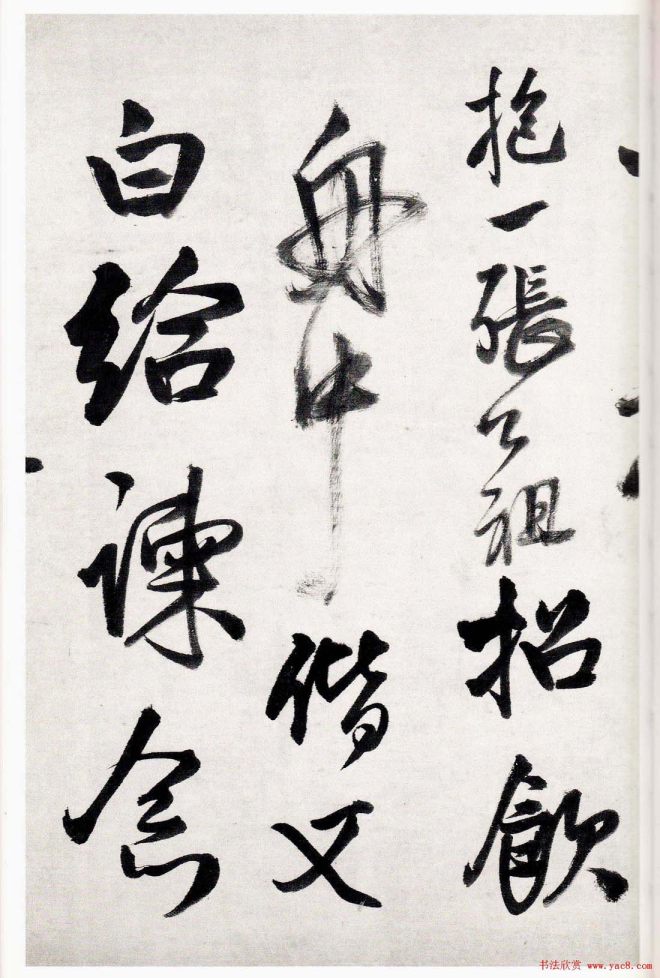 抱一張公祖招飲
舟中偕又
白給諫念
书法欣赏 www.yac8.com